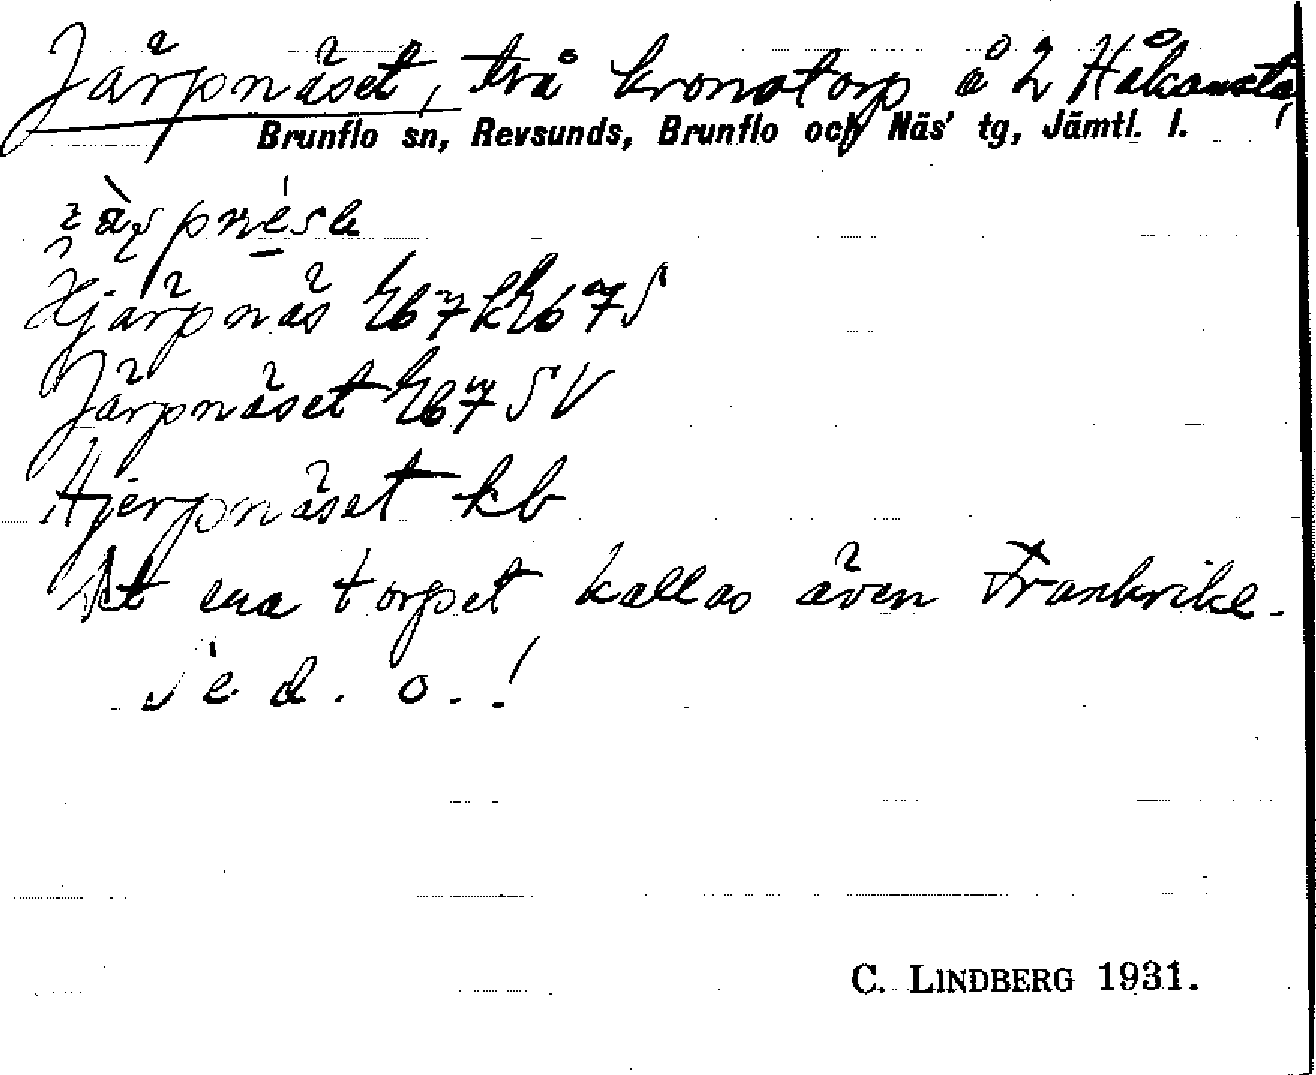 Järpnäset, två kronotorp å 2 Håkansta,
Brunflo sn, Revsunds, Brunflo och Näs' tg, Jämtl. l.
Hjärpnäs
Järpnäset
Hjerpnäset kb
Det ena torpet kallas även Frankrike.
d. o.!
C. LINDBERG 1931.